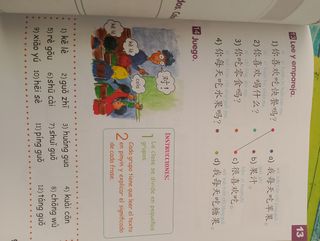 13
13 Lee y empareja.
1) 你喜欢吃快餐吗? a) 我每天吃苹果。
2) 你喜欢喝什么? b) 果汁
3) 你吃零食吗? c) 很喜欢吃。
4) 你每天吃水果吗? d) 我每天吃糖果。
14 Juego.
对!
INSTRUCCIONES:
1 La clase se divide en pequeños
grupos.
2 Cada grupo tiene que leer el texto
en pinyin y explicar el significado
de cada frase.
1) kě lè 2) guǒ zhī 3) huáng gua 4) kuài cān
5) rè gǒu 6) shū cài 7) shuǐ guǒ 8) chǒng wù
9) xiǎo yú 10) hēi sè 11) píng guǒ 12) táng guǒ